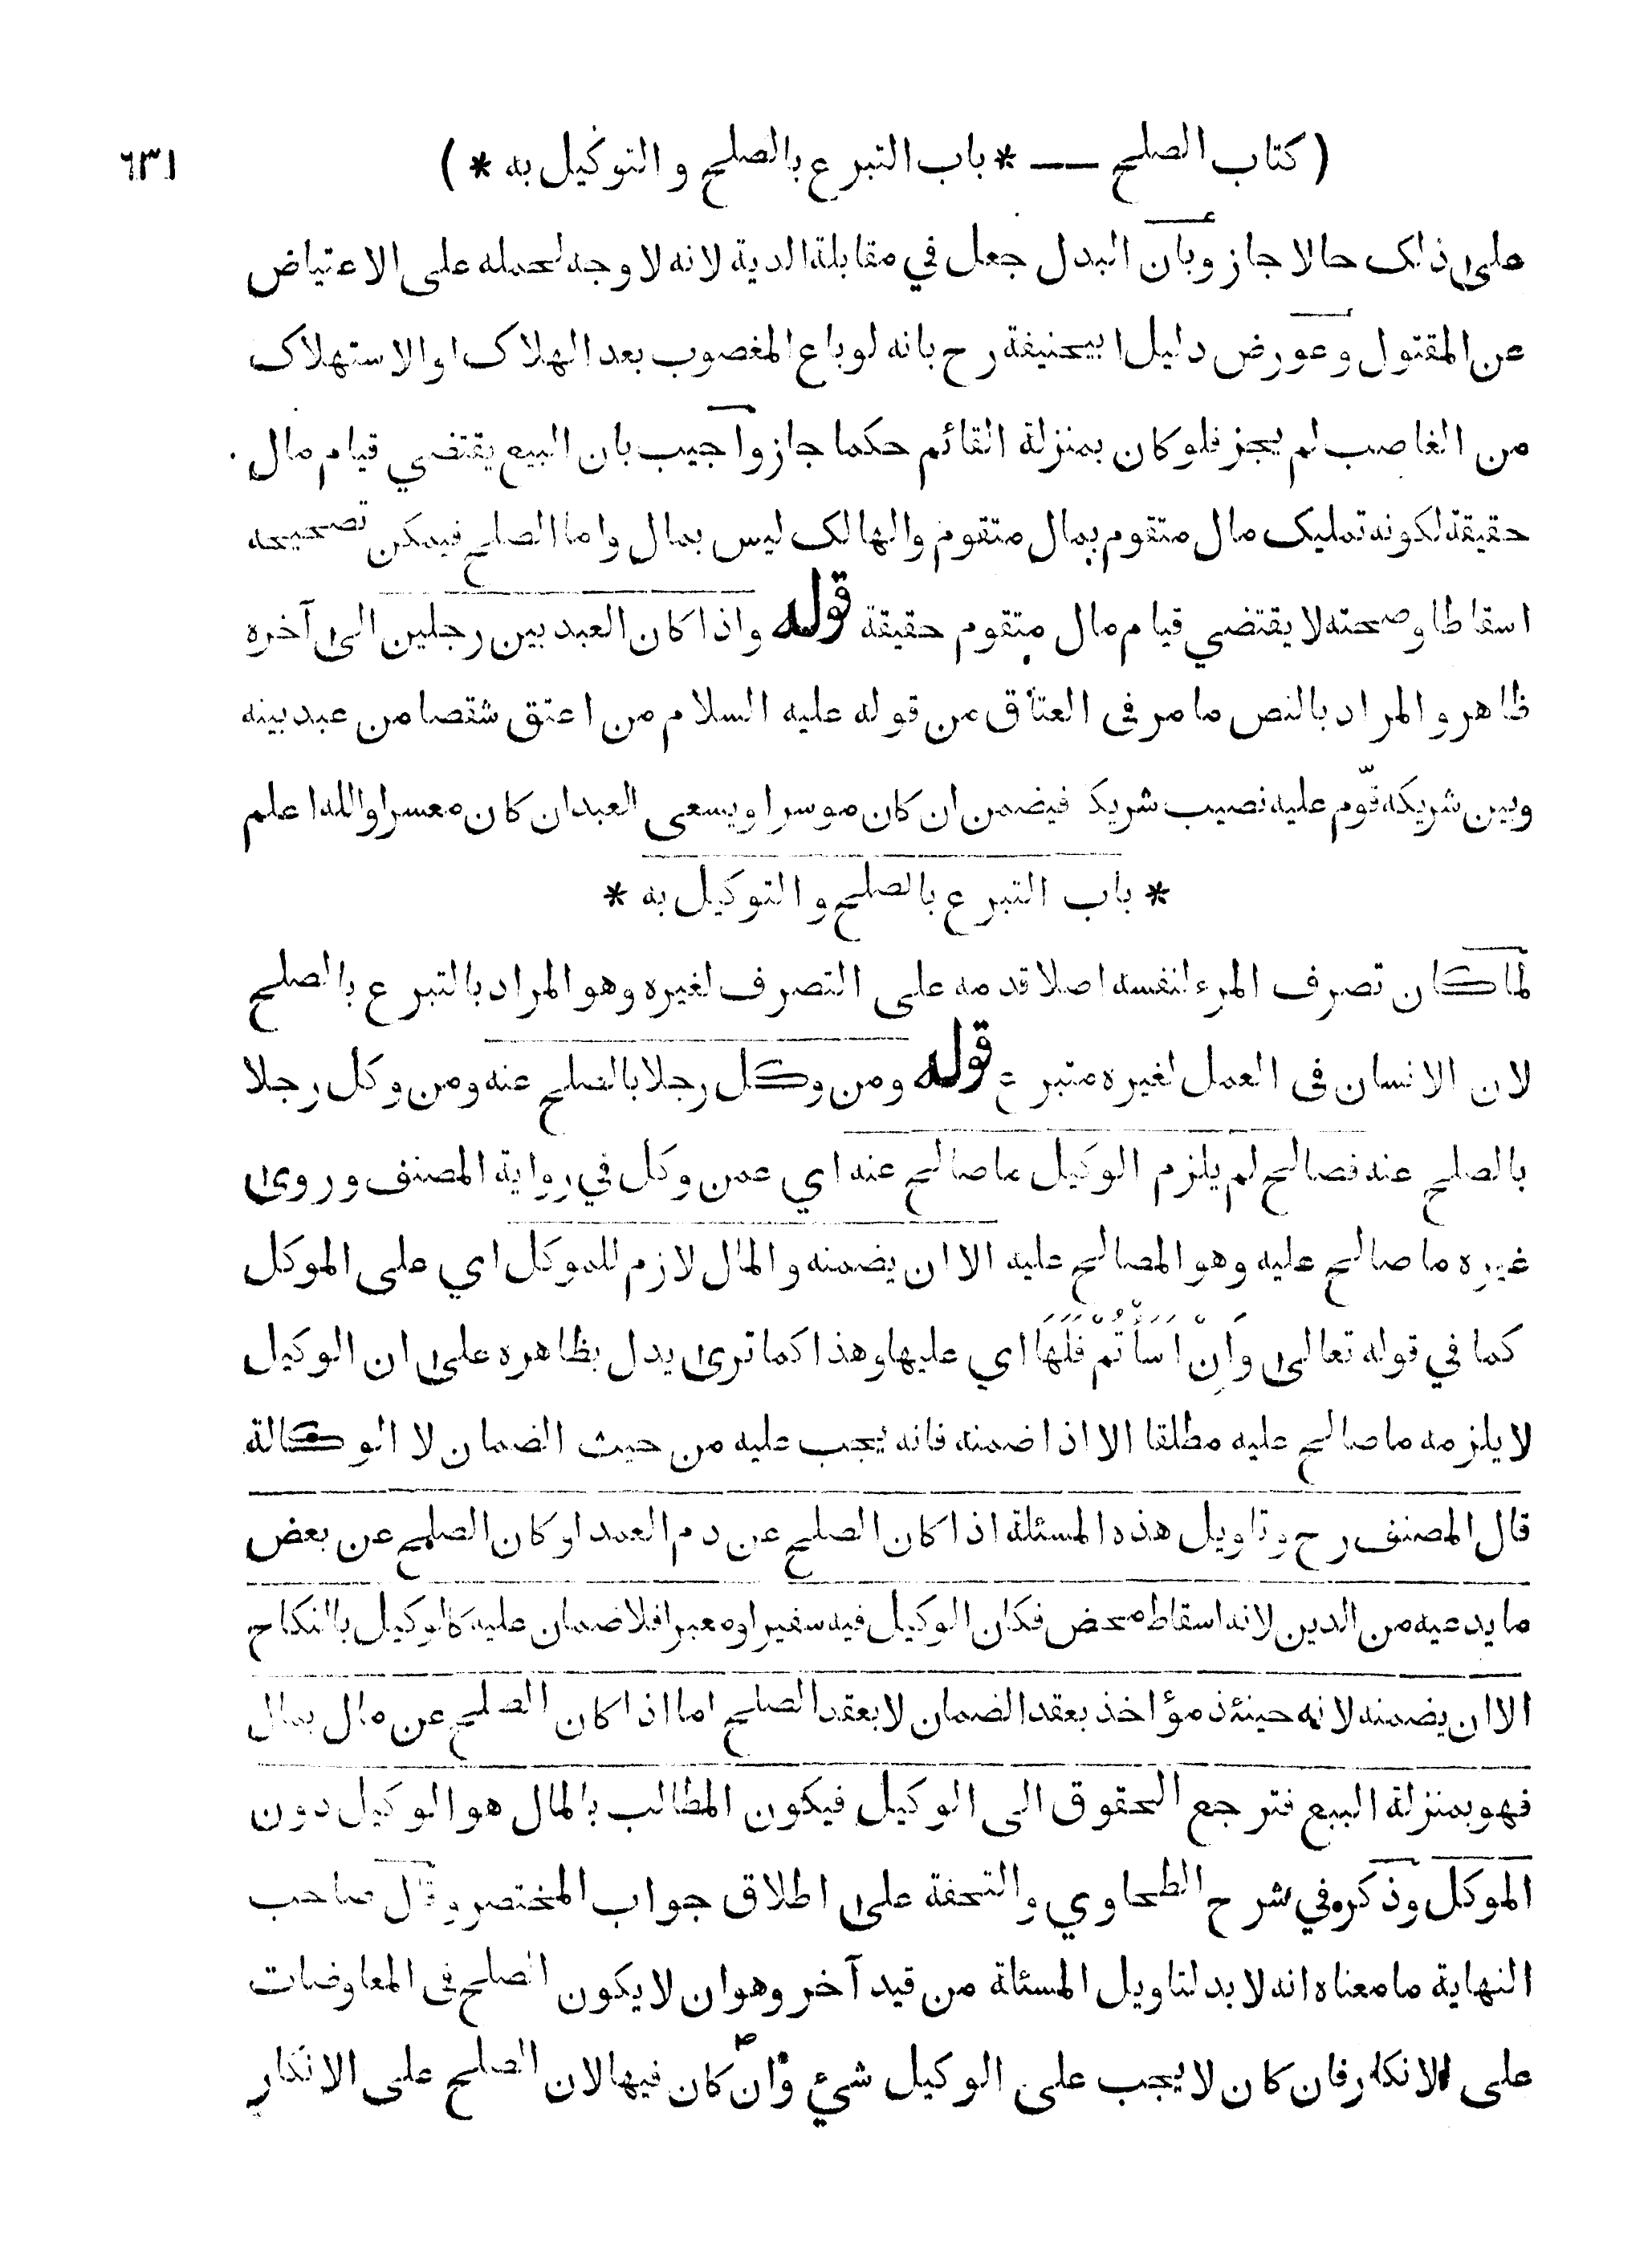 ( كتاب الصلح — * باب التبرع بالصلح والتوكيل به * ) ٦٣١
على ذلك حالا جاز وبأن البدل جعل في مقابلة الدية لانه لا وجه لحمله على الاعتياض
عن المقتول وعورض دليل ابيحنيفة رح بانه لو باع المغصوب بعد الهلاك او الاستهلاك
من الغاصب لم يجز فلو كان بمنزلة القائم حكما جاز واجيب بان البيع يقتضي قيام مال
حقيقة لكونه تمليك مال متقوم بمال متقوم والهالك ليس بمال واما الصلح فيمكن تصحيحه
اسقاطا وصحته لا يقتضي قيام مال متقوم حقيقة قوله واذا كان العبد بين رجلين الى آخره
ظاهر والمراد بالنص ما مر في العتاق من قوله عليه السلام من اعتق شقصا من عبد بينه
وبين شريكه قوّم عليه نصيب شريكه فيضمن ان كان موسرا ويسعى العبد ان كان معسرا والله اعلم
* باب التبرع بالصلح والتوكيل به *
لما كان تصرف المرء لنفسه اصلا قدمه على التصرف لغيره وهو المراد بالتبرع بالصلح
لان الانسان في العمل لغيره متبرع قوله ومن وكل رجلا بالصلح عنه ومن وكل رجلا
بالصلح عنه فصالح لم يلزم الوكيل ما صالح عنه اي عمن وكل في رواية المصنف وروى
غيره ما صالح عليه وهو المصالح عليه الا ان يضمنه والمال لازم للموكل اي على الموكل
كما في قوله تعالى وَاِنْ اَسَأْتُمْ فَلَهَا اي عليها وهذا كما ترى يدل بظاهره على ان الوكيل
لا يلزمه ما صالح عليه مطلقا الا اذا ضمنه فانه يجب عليه من حيث الضمان لا الوكالة
قال المصنف رح وتاويل هذه المسئلة اذا كان الصلح عن دم العمد او كان الصلح عن بعض
ما يدعيه من الدين لانه اسقاط محض فكان الوكيل فيه سفيرا ومعبرا فلا ضمان عليه كالوكيل بالنكاح
الا ان يضمنه لانه حينئذ مؤاخذ بعقد الضمان لا بعقد الصلح اما اذا كان الصلح عن مال بمال
فهو بمنزلة البيع فترجع الحقوق الى الوكيل فيكون المطالب بالمال هو الوكيل دون
الموكل وذكره في شرح الطحاوي والتحفة على اطلاق جواب المختصر وقال صاحب
النهاية ما معناه انه لا بد لتاويل المسئلة من قيد آخر وهو ان لا يكون الصلح في المعاوضات
على الانكار فان كان لا يجب على الوكيل شئ وان كان فيها لان الصلح على الانكار